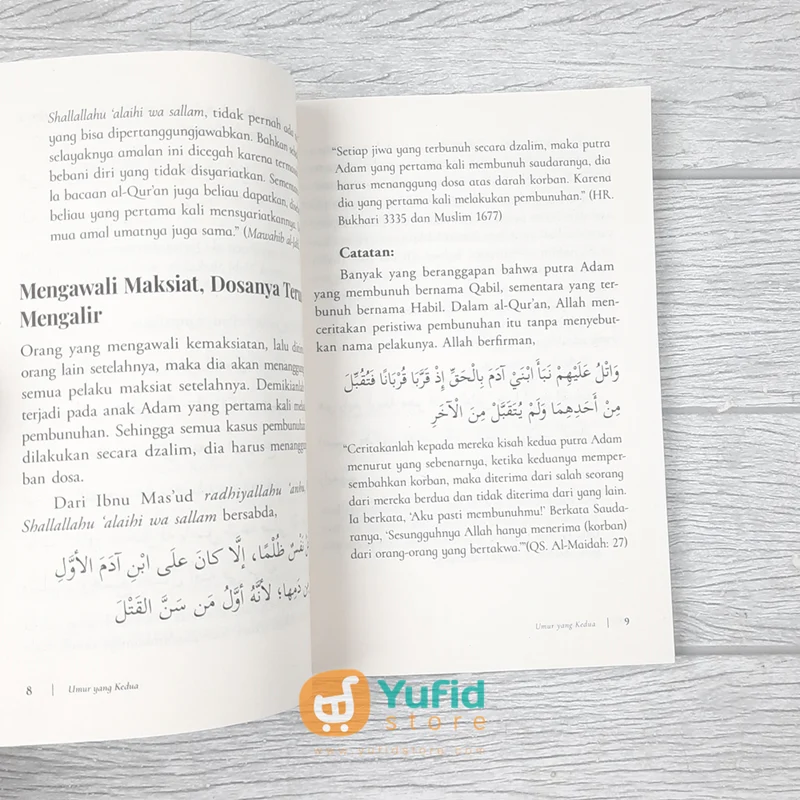 Shallallahu 'alaihi wa sallam, tidak pernah ada
yang bisa dipertanggungjawabkan. Bahkan
selayaknya amalan ini dicegah karena
bebani diri yang tidak disyariatkan.
la bacaan al-Qur'an juga beliau dapatkan,
beliau yang pertama kali mensyariatkannya.
mua amal umatnya juga sama." (Mawahib
Mengawali Maksiat, Dosanya
Mengalir
Orang yang mengawali kemaksiatan, lalu
orang lain setelahnya, maka dia akan
semua pelaku maksiat setelahnya.
terjadi pada anak Adam yang pertama kali
pembunuhan. Sehingga semua kasus
dilakukan secara dzalim, dia harus
ban dosa.
Dari Ibnu Mas'ud radhiyallahu
Shallallahu 'alaihi wa sallam bersabda,
نَفْسٌ ظُلْمًا، إلَّا كانَ علَى ابْنِ آدَمَ الأوَّلِ
دَمِها؛ لأنَّهُ أوَّلُ مَن سَنَّ القَتْلَ
8 | Umur yang Kedua
"Setiap jiwa yang terbunuh secara dzalim, maka putra
Adam yang pertama kali membunuh saudaranya, dia
harus menanggung dosa atas darah korban. Karena
dia yang pertama kali melakukan pembunuhan." (HR.
Bukhari 3335 dan Muslim 1677)
Catatan:
Banyak yang beranggapan bahwa putra Adam
yang membunuh bernama Qabil, sementara yang ter-
bunuh bernama Habil. Dalam al-Qur'an, Allah men-
ceritakan peristiwa pembunuhan itu tanpa menyebut-
kan nama pelakunya. Allah berfirman,
وَاتْلُ عَلَيْهِمْ نَبَأَ ابْنَيْ آدَمَ بِالْحَقِّ إِذْ قَرَّبَا قُرْبَانًا فَتُقُبِّلَ
مِنْ أَحَدِهِمَا وَلَمْ يُتَقَبَّلْ مِنَ الْآخَرِ
"Ceritakanlah kepada mereka kisah kedua putra Adam
menurut yang sebenarnya, ketika keduanya memper-
sembahkan korban, maka diterima dari salah seorang
dari mereka berdua dan tidak diterima dari yang lain.
Ia berkata, 'Aku pasti membunuhmu!' Berkata Sauda-
ranya, 'Sesungguhnya Allah hanya menerima (korban)
dari orang-orang yang bertakwa.'"(QS. Al-Maidah: 27)
Umur yang Kedua | 9
Yufid
store
www.yufidstore.com